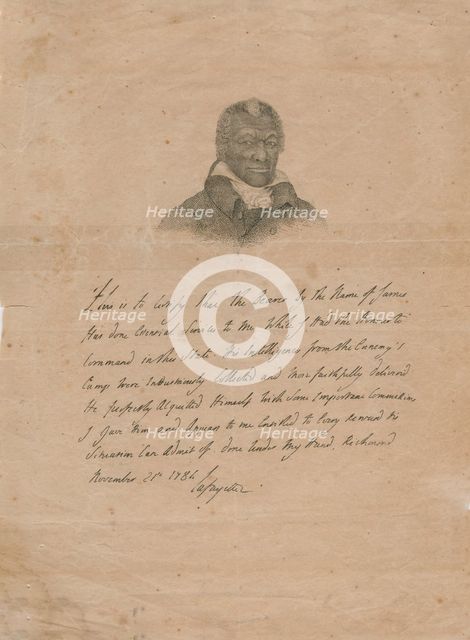 Heritage Heritage
This is to Certify that the Bearer By the Name of James
Has done Essential Services to Me While I Had the Honour to
Heritage Heritage
Command in this State. His Intelligences from the Enemy's
Camp were Industriously Collected and More faithfully deliver'd
He perfectly Acquitted Himself with Some Important Commissions
I Gave Him and Appears to me Entitled to Every Reward his
Heritage Heritage
Situation Can Admit of. Done Under my Hand, Richmond
November 21st 1784
Lafayette